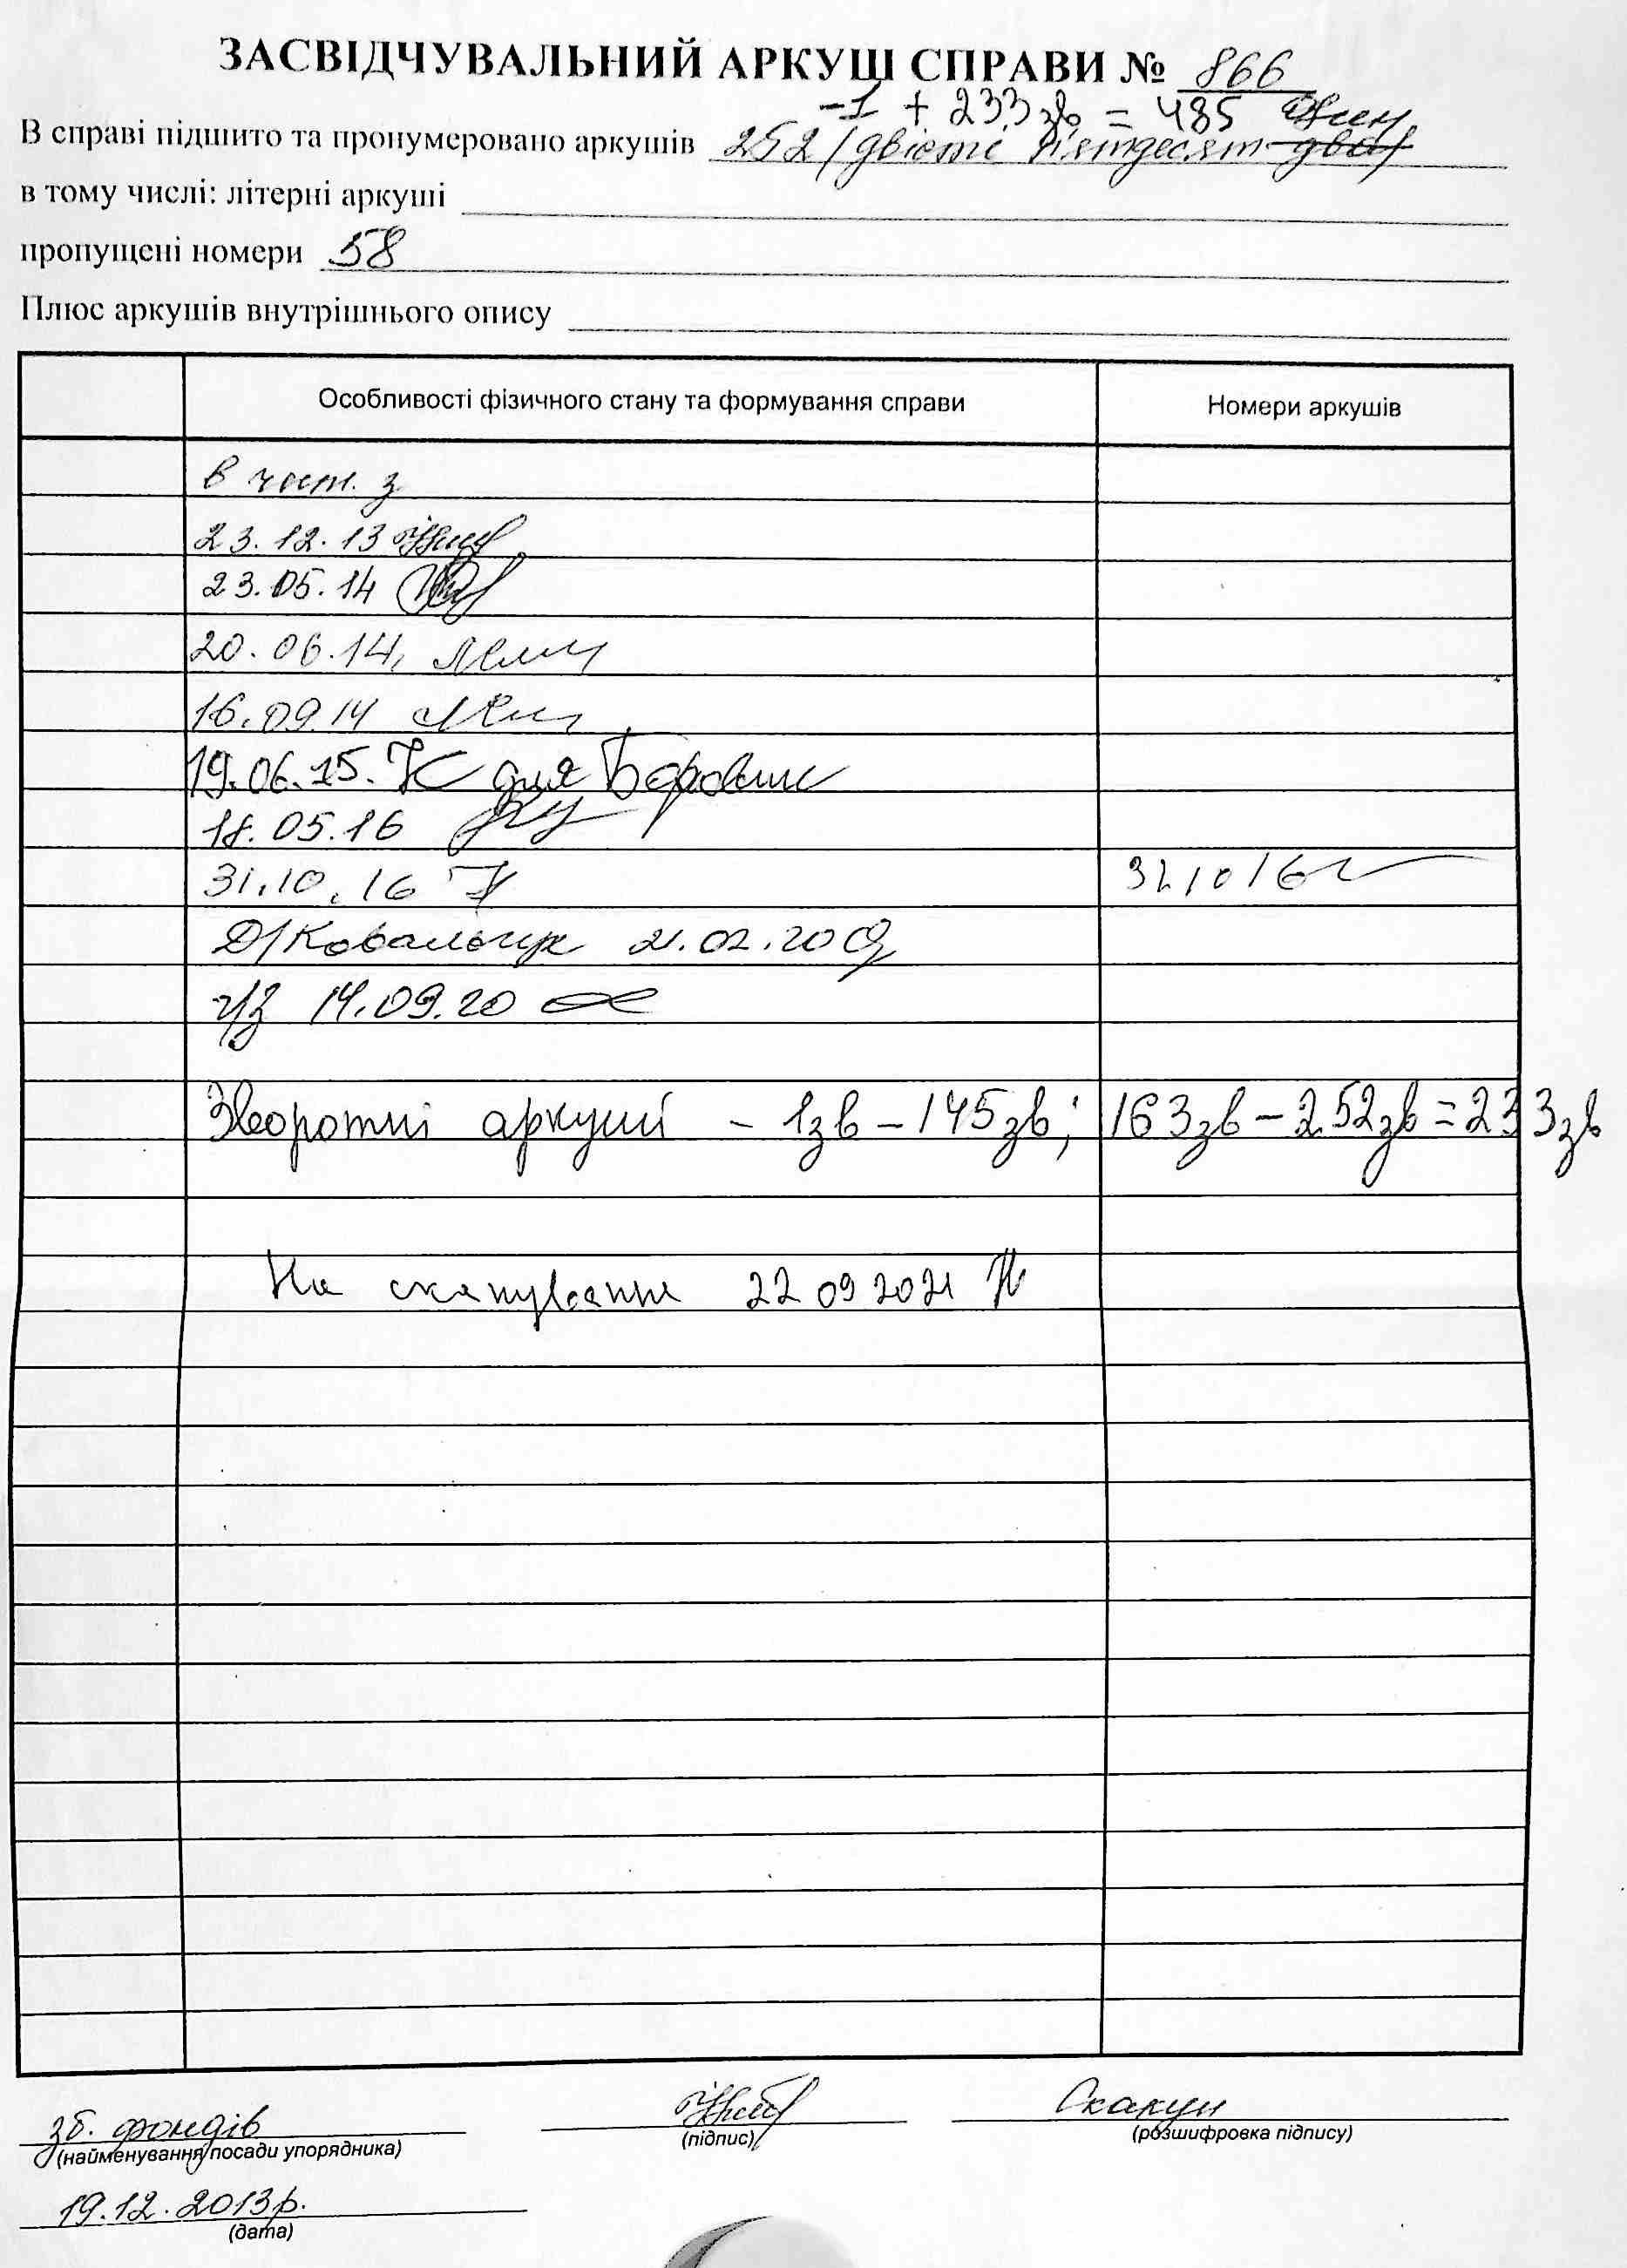 ЗАСВІДЧУВАЛЬНИЙ АРКУШ СПРАВИ № 866
-1 + 233 зв = 485
В справі підшито та пронумеровано аркушів 252 /двісті п'ятдесят два/
в тому числі: літерні аркуші
пропущені номери 58
Плюс аркушів внутрішнього опису
Особливості фізичного стану та формування справи Номери аркушів
в чит. з
23.12.13
23.05.14
20.06.14,
16.09.14
19.06.15. для
18.05.16
31.10.16 31.10 16
Д/Ковальчук 21.02.20
ч/з 14.09.20
Зворотні аркуші - 1зв - 145зв; 163зв - 252зв = 233зв
На сканування 22 09 2021
зб. фондів Скакун
(найменування посади упорядника) (підпис) (розшифровка підпису)
19.12.2013р.
(дата)